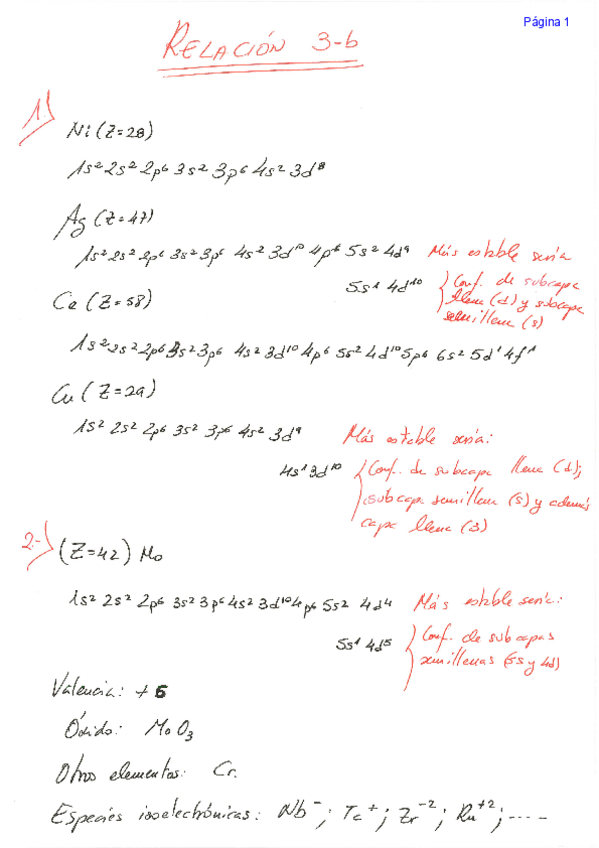 Página 1
RELACIÓN 3-b
1.)
Ni (Z=28)
1s² 2s² 2p⁶ 3s² 3p⁶ 4s² 3d⁸
Ag (Z=47)
1s² 2s² 2p⁶ 3s² 3p⁶ 4s² 3d¹⁰ 4p⁶ 5s² 4d⁹ Más estable sería
5s¹ 4d¹⁰ Conf. de subcapa
llena (d) y subcapa
semillena (s)
Ce (Z=58)
1s² 2s² 2p⁶ 3s² 3p⁶ 4s² 3d¹⁰ 4p⁶ 5s² 4d¹⁰ 5p⁶ 6s² 5d¹ 4f¹
Cu (Z=29)
1s² 2s² 2p⁶ 3s² 3p⁶ 4s² 3d⁹ Más estable sería:
4s¹ 3d¹⁰ Conf. de subcapa llena (d);
subcapa semillena (s) y además
capa llena (3)
2.-)
(Z=42) Mo
1s² 2s² 2p⁶ 3s² 3p⁶ 4s² 3d¹⁰ 4p⁶ 5s² 4d⁴ Más estable sería:
5s¹ 4d⁵ Conf. de subcapas
semillenas (5s y 4d)
Valencia: +6
Óxido: MoO₃
Otros elementos: Cr.
Especies isoelectrónicas: Nb⁻; Tc⁺; Zr⁻²; Ru⁺²; ----